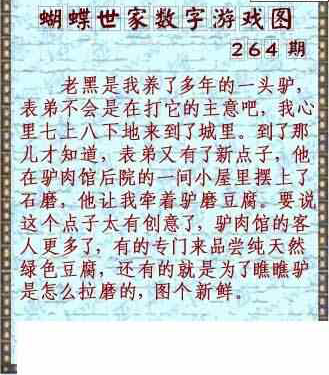 蝴蝶世家数字游戏图
264期
老黑是我养了多年的一头驴，
表弟不会是在打它的主意吧，我心
里七上八下地来到了城里。到了那
儿才知道，表弟又有了新点子，他
在驴肉馆后院的一间小屋里摆上了
石磨，他让我牵着驴磨豆腐。要说
这个点子太有创意了，驴肉馆的客
人更多了，有的专门来品尝纯天然
绿色豆腐，还有的就是为了瞧瞧驴
是怎么拉磨的，图个新鲜。